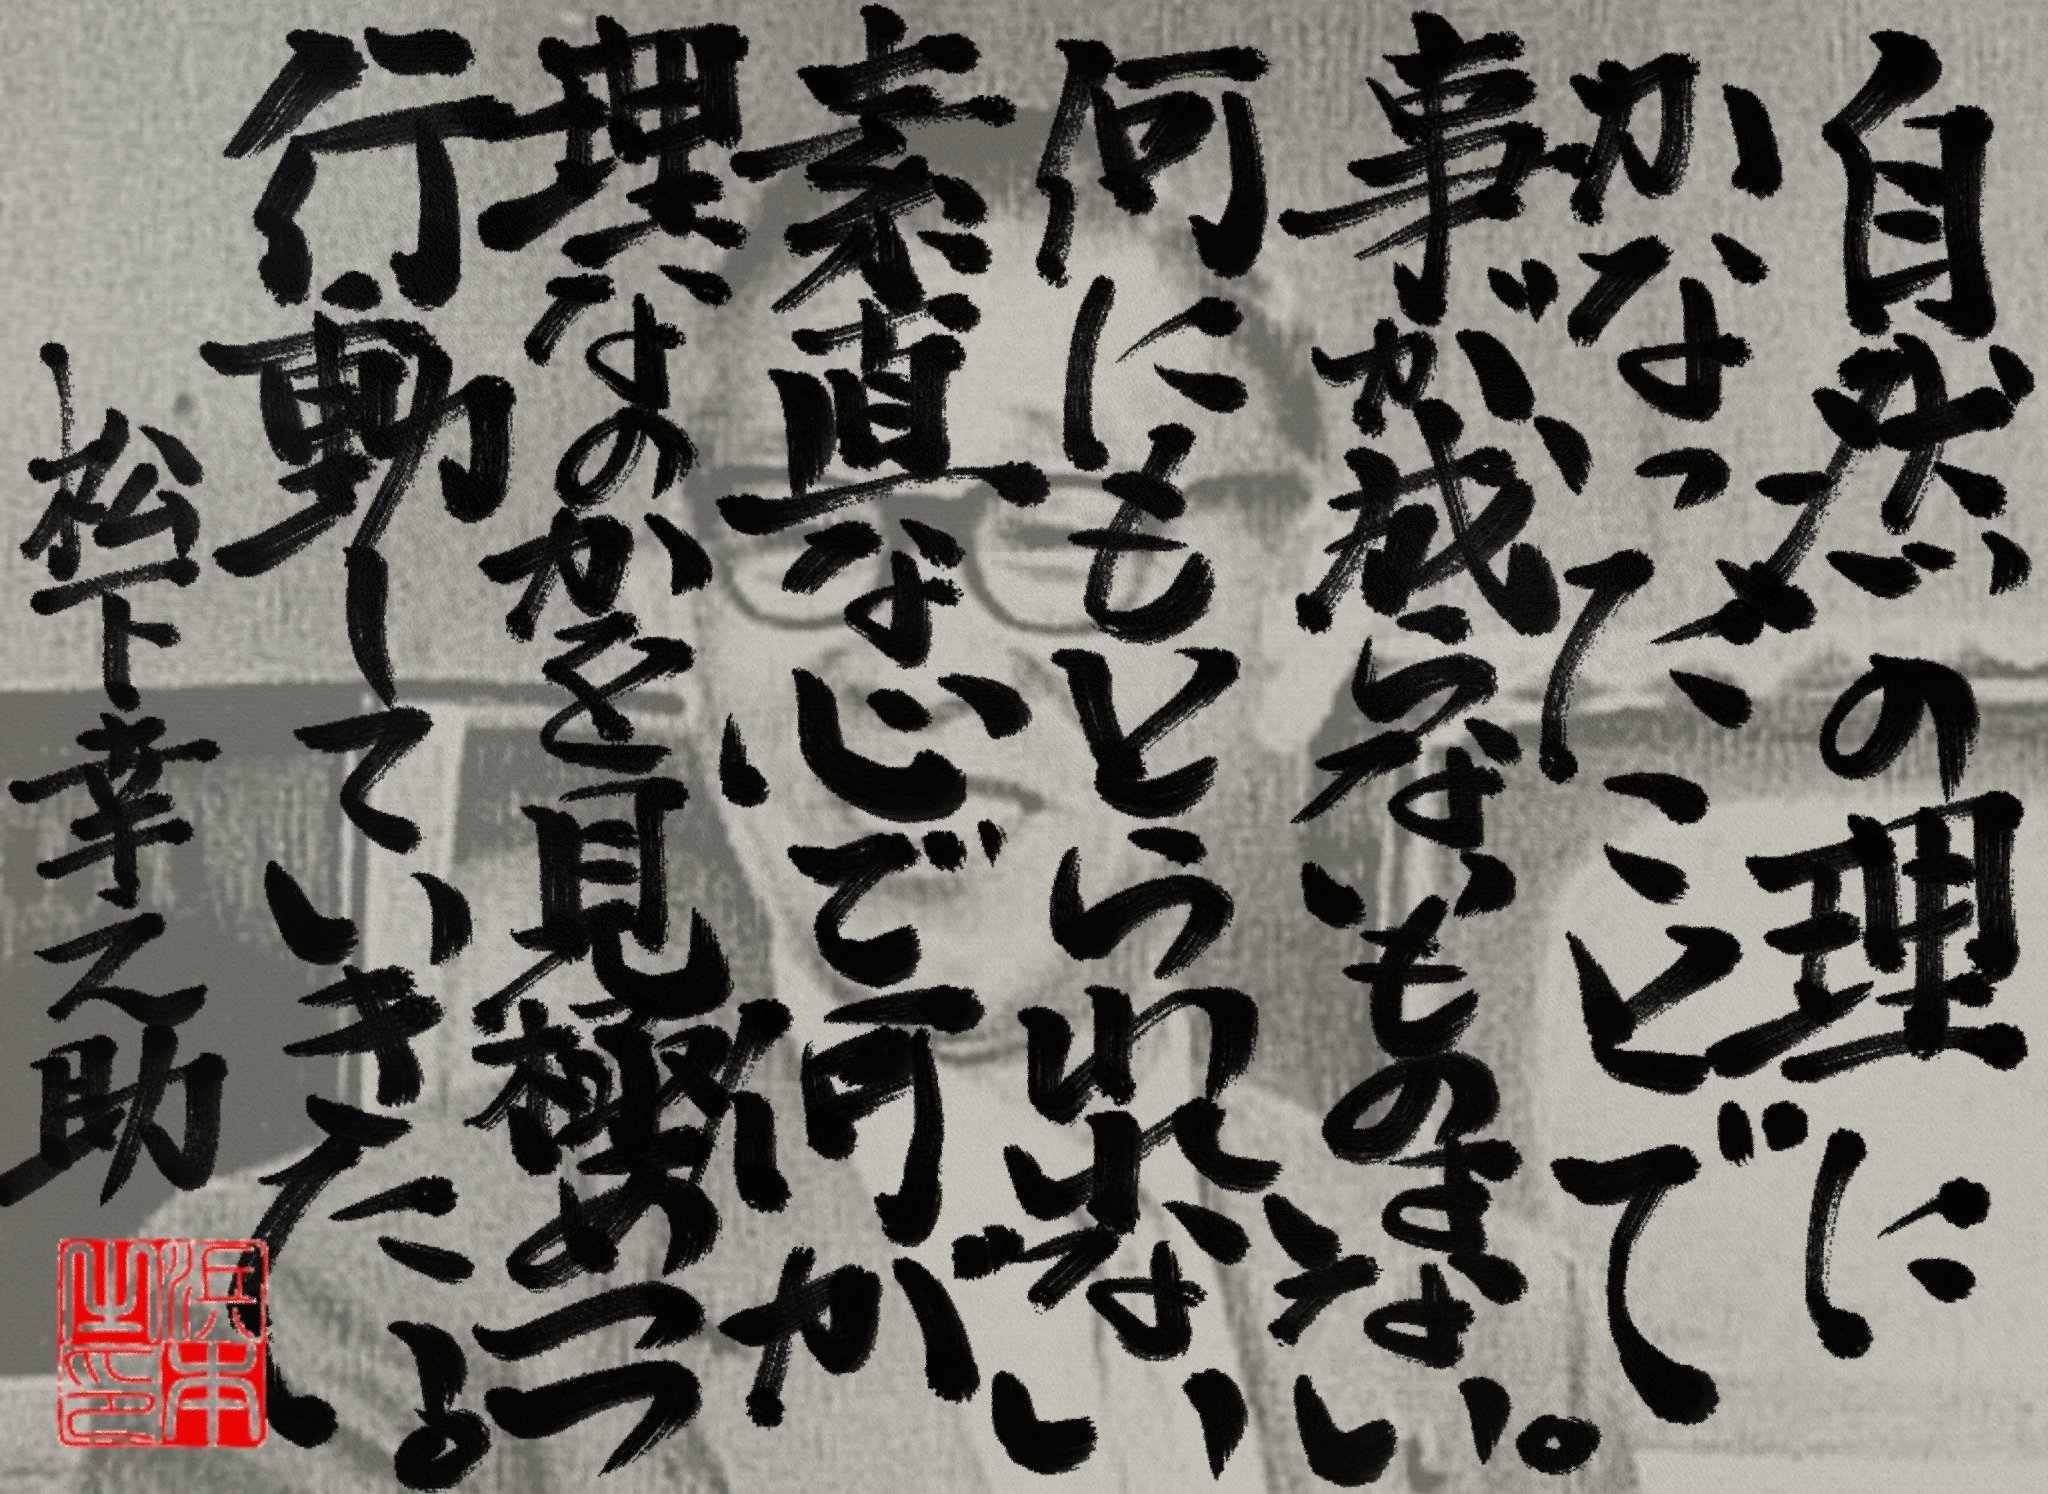 自然の理に
かなったことで
事が成らないものはない。
何にもとらわれない
素直な心で何が
理なのかを見極めつつ
行動していきたい。
松下幸之助
浜本之印